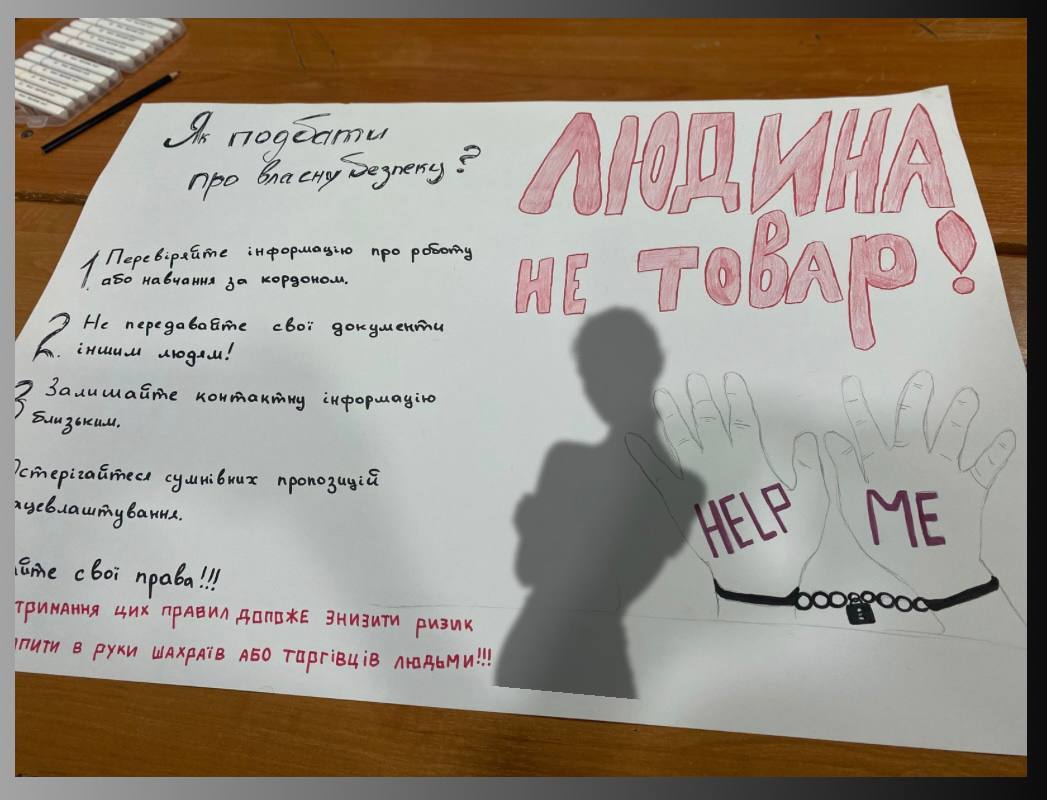 Як подбати
про власну безпеку?
1 Перевіряйте інформацію про роботу
або навчання за кордоном.
2. Не передавайте свої документи
іншим людям!
3 Залишайте контактну інформацію
близьким.
стерігайтеся сумнівних пропозицій
ацевлаштування.
йте свої права!!!
тримання цих правил допоже знизити ризик
пити в руки шахраїв або торгівців людьми!!!
ЛЮДИНА
НЕ ТОВАР!
HELP ME